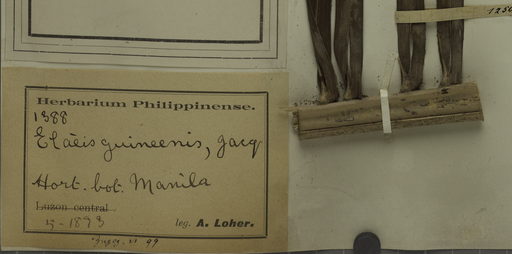 Herbarium Philippinense.
1388
Elaeis guineensis, Jacq
Hort. bot. Manila
Luzon central
leg. A. Loher.